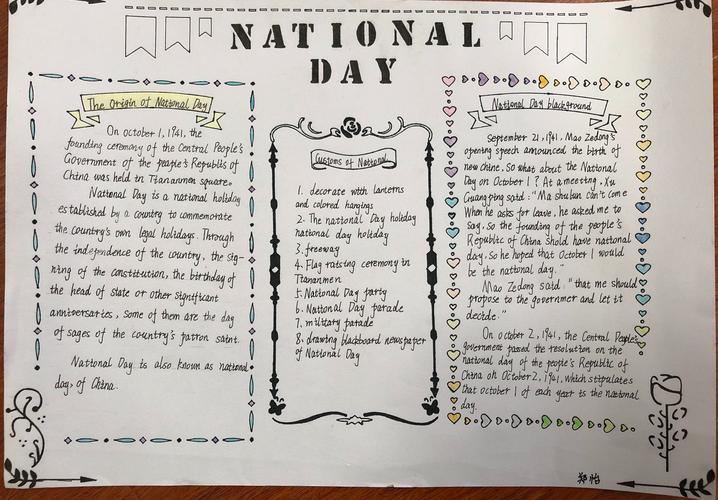 NATIONAL
DAY
The Origin of National Day
On october 1, 1941, the
founding ceremony of the Central People's
Government of the people's Republis of
China was held in Tiananmen square.
National Day is a national holiday
established by a country to commemorate
the country's own legal holidays. Through
the independence of the country, the sig-
ning of the constitution, the birthday of
the head of state or other significant
anniversaries, some of them are the day
of sages of the country's patron saint.
National Day is also known as national
day, of China.
Customs of National
1. decorate with lanterns
and colored hangings
2. The national Day holiday
national day holiday
3. freeway
4. Flag raising ceremony in
Tiananmen
5. National Day party
6. National Day parade
7. military parade
8. drawing blackboard newspaper
of National Day
National Day blackground
september 21, 1941, Mao Zedong's
opening speech announced the birth of
new chine. So what about the National
Day on October 1? At a meeting, Xu
Guangping said: "Ma shulun can't come
When he asks for leave, he asked me to
say. So the founding of the people's
Republic of China shold have national
day, So he hoped that October 1 would
be the national day."
Mao Zedong said: "that me should
propose to the governmer and let it
decide."
On october 2, 1941, the Central People's
government passed the resolution on the
national day of the people's Republic of
China on October 2, 1941, which stipulates
that october 1 of each year is the national
day.
郑怡